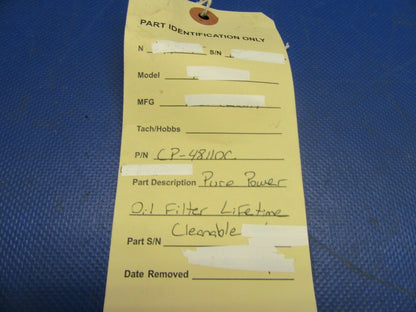 PART IDENTIFICATION ONLY
N S/N
Model
MFG
Tach/Hobbs
P/N CP-48110C
Part Description Pure Power
Oil Filter Lifetime
Cleanable
Part S/N
Date Removed